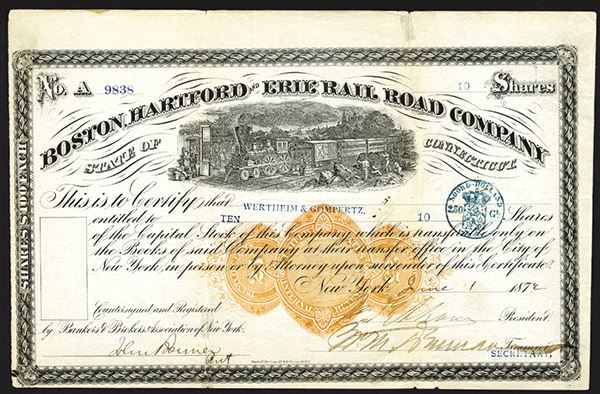 No. A 9838 10 Shares
BOSTON, HARTFORD AND ERIE RAIL ROAD COMPANY
STATE OF CONNECTICUT.
SHARES $100 EACH
This is to Certify that WERTHEIM & GOMPERTZ.
entitled to TEN 10 Shares
of the Capital Stock of this Company which is transferable only on
the Books of said Company at their transfer office in the City of
New York, in person or by Attorney upon surrender of this Certificate.
New York June 1 1872
NOORD-HOLLAND
250 Gl.
Countersigned and Registered
by Bankers & Brokers Association of New York.
President.
Treasurer
SECRETARY.